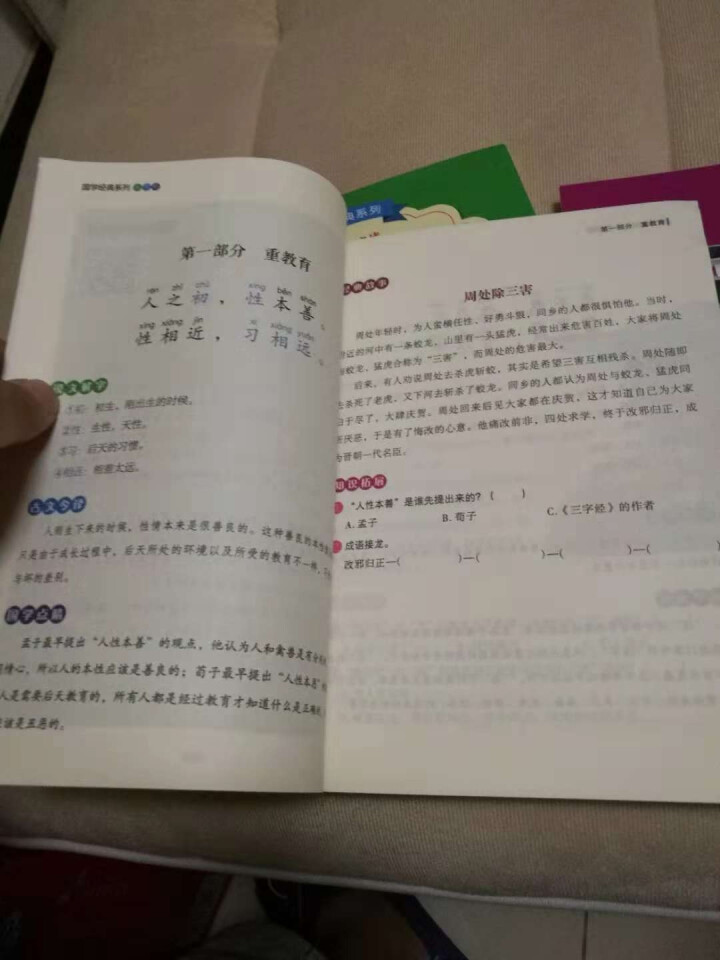 国学经典系列
第一部分 重教育
rén zhī chū xìng běn shàn
人之初，性本善。
xìng xiāng jìn xí xiāng yuǎn
性相近，习相远。
①初：初生，刚出生的时候。
②性：生性，天性。
③习：后天的习惯。
④相远：相差太远。
古文今译
人刚生下来的时候，性情本来是很善良的。这种善良的本性
只是由于成长过程中，后天所处的环境以及所受的教育不一样，
与坏的差别。
国学点睛
孟子最早提出“人性本善”的观点，他认为人和禽兽是有分
同情心，所以人的本性应该是善良的；荀子最早提出“人性本恶”
人是需要后天教育的，所有人都是经过教育才知道什么是正确
应该是丑恶的。
典系列
第一部分 重教育
经典故事
周处除三害
周处年轻时，为人蛮横任性，好勇斗狠，同乡的人都很惧怕他。当时，
附近的河中有一条蛟龙，山里有一头猛虎，经常出来危害百姓，大家将周处
与蛟龙、猛虎合称为“三害”，而周处的危害最大。
后来，有人劝说周处去杀虎斩蛟，其实是希望三害互相残杀。周处随即
去杀死了老虎，又下河去斩杀了蛟龙。同乡的人都认为周处与蛟龙、猛虎同
归于尽了，大肆庆贺。周处回来后见大家都在庆贺，这才知道自己为大家
所厌恶，于是有了悔改的心意。他痛改前非，四处求学，终于改邪归正，成
为晋朝一代名臣。
知识拓展
“人性本善”是谁先提出来的？（ ）
A. 孟子 B. 荀子 C.《三字经》的作者
成语接龙。
改邪归正—（ ）—（ ）—（ ）—（